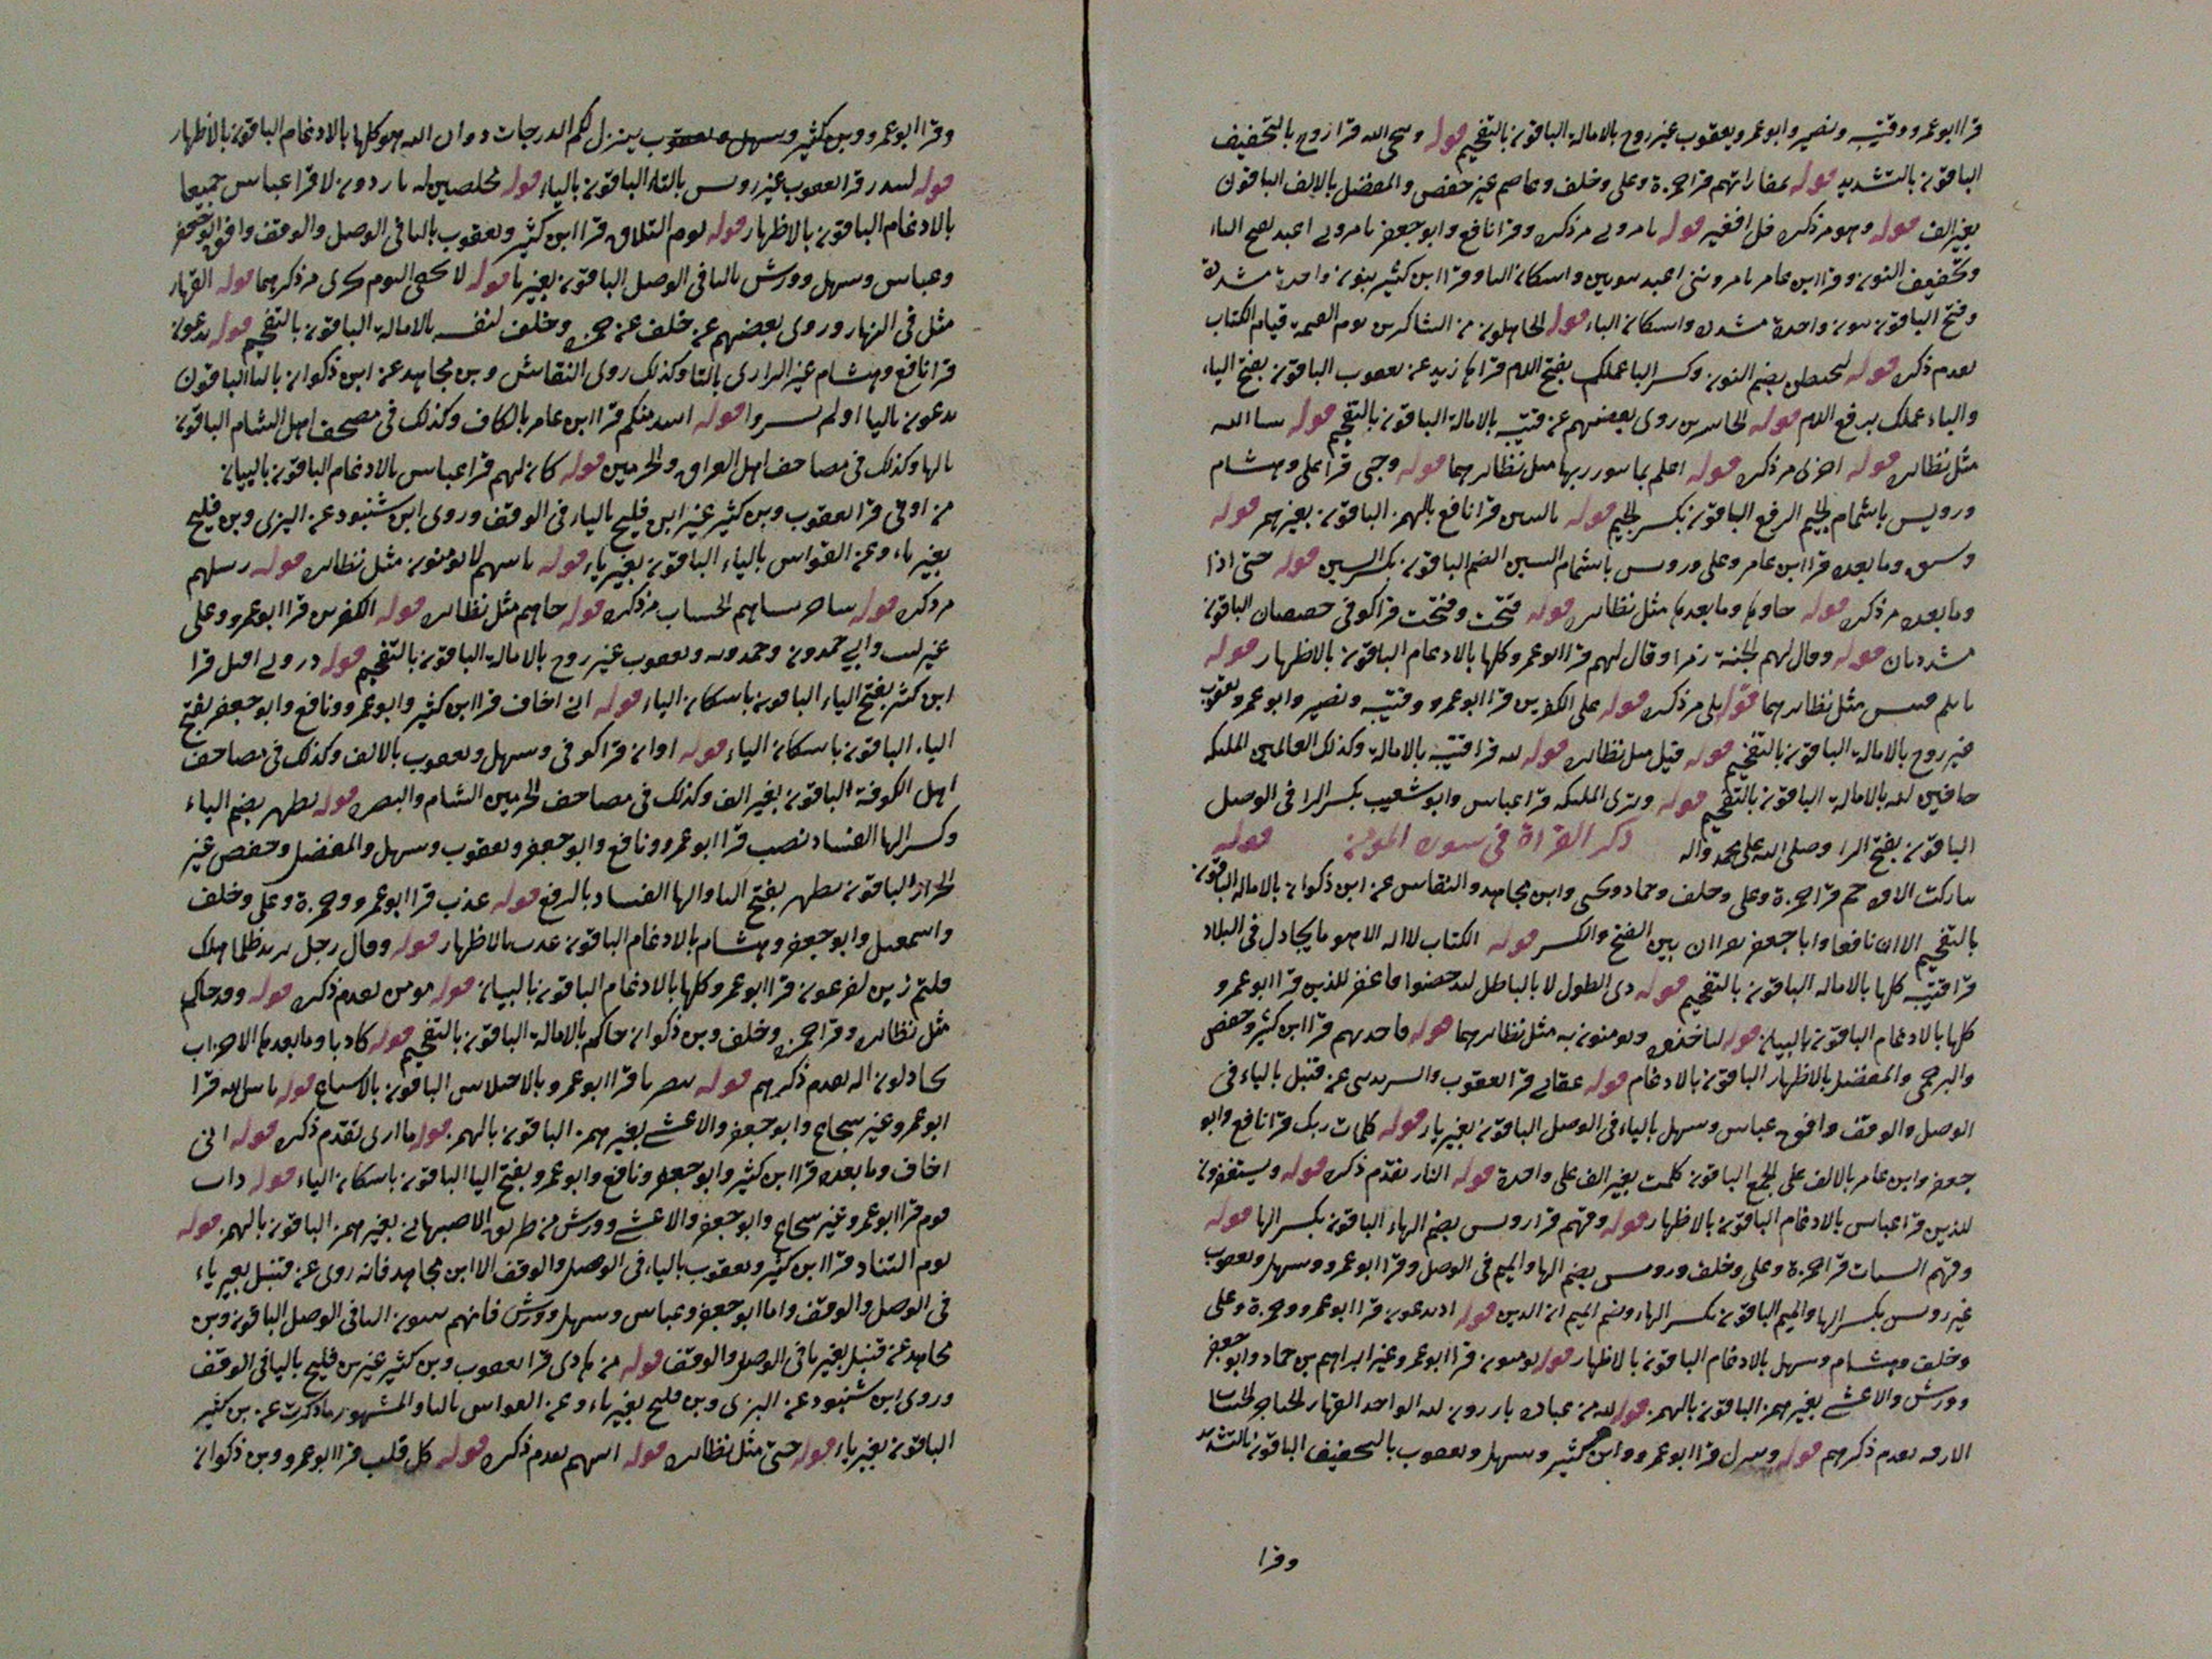 قرا ابو عمرو وقتيبه ونصير وابو عمرو ويعقوب غير روح بالامالة الباقون بالتفخيم قوله وسحى الله قرا روح بالتخفيف
الباقون بالتشديد قوله بمفازاتهم قرا حمزة وعلى وخلف وعاصم غير حفص والمفضل بالالف الباقون
بغير الف قوله وهو مر ذكره قل افغير قوله تامرونى مر ذكره وقرا نافع وابو جعفر تامرونى اعبد بفتح الياء
وتخفيف النون وقرا ابن عامر تامروننى اعبد بنونين واسكان اليا وقرا ابن كثير بنون واحدة مشددة
وفتح الباقون بنون واحدة مشددة واسكان الياء قوله الجاهلون من الشاكرين يوم القيمة قيام الكتاب
تقدم ذكره قوله ليحبطن بضم النون وكسر البا عملك بفتح اللام قراها زيد عن يعقوب الباقون بفتح الياء
والباء عملك برفع اللام قوله الخاسرين روى بعضهم عن قتيبه بالامالة الباقون بالتفخيم قوله شا الله
مثل نظائره قوله اخرى مر ذكره قوله اعلم بما بنور ربها مثل نظائرهما قوله وجى قرا على وهشام
ورويس باشمام الجيم الرفع الباقون بكسر الجيم قوله بالنبيين قرا نافع بالهمز الباقون بغير همز قوله
وسيق وما بعده قرا ابن عامر وعلى ورويس باشمام السين الضم الباقون بكسر السين قوله حتى اذا
وما بعده مر ذكره قوله جاوها وما بعدها مثل نظائره قوله فتحت وفتحت قرا كوفى خفيفتان الباقون
مشددتان قوله وقال لهم الجنة زمرا وقال لهم قرا ابو عمرو كلها بالادغام الباقون بالاظهار قوله
ياتكم فبيس مثل نظائرهما قوله بلى مر ذكره قوله على الكفرين قرا ابو عمرو وقتيبه ونصير وابو عمرو ويعقوب
غير روح بالامالة الباقون بالتفخيم قوله قيل مثل نظائره قوله لله قرا قتيبه بالامالة وكذلك العالمين الملئكه
حافين لله بالامالة الباقون بالتفخيم قوله وترى الملئكه قرا عباس وابو شعيب بكسر الرا فى الوصل
الباقون بفتح الرا وصلى الله على محمد واله ذكر القراة فى سورة المؤمن قوله
تباركت الاؤه حم قرا حمزة وعلى وخلف وحماد ويحيى وابن مجاهد والنقاش عن ابن ذكوان بالامالة الباقون
بالتفخيم الا ان نافعا وابا جعفر يقرآن بين الفتح والكسر قوله الكتاب لا اله الا هو ما يجادل فى البلاد
قرا قتيبه كلها بالاماله الباقون بالتفخيم قوله ذى الطول لا بالباطل ليدحضوا فاغفر للذين قرا ابو عمرو
كلها بالادغام الباقون بالبيان قوله لياخذوه ويومنون به مثل نظائرهما قوله فاخذتهم قرا ابن كثير وحفص
والبرجمى والمفضل بالاظهار الباقون بالادغام قوله عقابى قرا يعقوب والسرندسى عن قنبل بالياء فى
الوصل والوقف وافق عباس وسهل بالياء فى الوصل الباقون بغير ياء قوله كلمات ربك قرا نافع وابو
جعفر وابن عامر بالالف على الجمع الباقون كلمت بغير الف على واحدة قوله النار تقدم ذكره قوله ويستغفرون
للذين قرا عباس بالادغام الباقون بالاظهار قوله وقهم قرا رويس بضم الهاء الباقون بكسر الها قوله
وقهم السيات قرا حمزة وعلى وخلف ورويس بضم الها والميم فى الوصل وقرا ابو عمرو وسهل ويعقوب
غير رويس بكسر الها والميم الباقون بكسر الهاء وضم الميم ان الذين قوله اذ تدعون قرا ابو عمرو وحمزة وعلى
وخلف وهشام وسهل بالادغام الباقون بالاظهار قوله تومنون قرا ابو عمرو غير ابراهيم بن حماد وابو جعفر
وورش والاعشى بغير همز الباقون بالهمز قوله لله من عباده بارزون لله الواحد القهار الحناجر الحساب
الازفه تقدم ذكرهم قوله وينزل قرا ابو عمرو وابن كثير وسهل ويعقوب بالتخفيف الباقون بالتشديد
وقرا
وقرا ابو عمرو وبن كثير وسهل ويعقوب ينزل لكم الدرجات ذو ان الله هو كلها بالادغام الباقون بالاظهار
قوله لتنذر قرا يعقوب غير رويس بالتاء الباقون بالياء قوله مخلصين له بارزون لا قرا عباس جميعا
بالادغام الباقون بالاظهار قوله يوم التلاق قرا ابن كثير ويعقوب باليا فى الوصل والوقف وافق ابو جعفر
وعباس وسهل وورش باليا فى الوصل الباقون بغير يا قوله لا يخفى اليوم تجزى مر ذكرهما قوله القهار
مثل فى النهار وروى بعضهم عن خلف عن حمزة وخلف لنفسه بالامالة الباقون بالتفخيم قوله يدعون
قرا نافع وهشام غير الرازى بالتا وكذلك روى النقاش وبن مجاهد عن ابن ذكوان بالتا الباقون
يدعون باليا اولم يسيروا قوله اشد منكم قرا ابن عامر بالكاف وكذلك فى مصحف اهل الشام الباقون
بالها وكذلك فى مصاحف اهل العراق والحرمين قوله كان لهم قرا عباس بالادغام الباقون بالبيان
من اوقى قرا يعقوب وبن كثير غير ابن فليح بالياء فى الوقف وروى ابن شنبوذ عن البزى وبن فليح
بغير ياء وعن القواس بالياء الباقون بغير ياء قوله تاتيهم لا يومنون مثل نظائره قوله رسلهم
مر ذكره قوله ساحر نساهم الحساب مر ذكره قوله جاهم مثل نظائره قوله الكفرين قرا ابو عمرو وعلى
غير ليث وابى حمدون وحمدويه ويعقوب غير روح بالامالة الباقون بالتفخيم قوله ذرونى اقتل قرا
ابن كثير بفتح الياء الباقون باسكان الياء قوله انى اخاف قرا ابن كثير وابو عمرو ونافع وابو جعفر بفتح
الياء الباقون باسكان الياء قوله اوان قرا كوفى وسهل ويعقوب بالالف وكذلك فى مصاحف
اهل الكوفة الباقون بغير الف وكذلك فى مصاحف الحرمين الشام والبصره قوله يظهر بضم الياء
وكسر الها الفساد نصب قرا ابو عمرو ونافع وابو جعفر ويعقوب وسهل والمفضل وحفص غير
الخراز الباقون يظهر بفتح اليا والها الفساد بالرفع قوله عذت قرا ابو عمرو وحمزة وعلى وخلف
واسمعيل وابو جعفر وهشام بالادغام الباقون عذت بالاظهار قوله وقال رجل يريد ظلما هلك
قلتم زين لفرعون قرا ابو عمرو كلها بالادغام الباقون بالبيان قوله مومن تقدم ذكره قوله وقد جاكم
مثل نظائره وقرا حمزة وخلف وبن ذكوان جاكم بالامالة الباقون بالتفخيم قوله كاذبا وما بعدها الاحزاب
يجادلون اله تقدم ذكرهم قوله ينصرنا قرا ابو عمرو بالاختلاس الباقون بالاشباع قوله باس الله قرا
ابو عمرو غير شجاع وابو جعفر والاعشى بغير همز الباقون بالهمز قوله ما ارى تقدم ذكره قوله انى
اخاف وما بعده قرا ابن كثير وابو جعفر ونافع وابو عمرو بفتح اليا الباقون باسكان الياء قوله داب
قوم قرا ابو عمرو غير شجاع وابو جعفر والاعشى وورش من طريق الاصبهانى بغير همز الباقون بالهمز قوله
يوم التناد قرا ابن كثير ويعقوب بالياء فى الوصل والوقف الا ابن مجاهد فانه روى عن قنبل بغير ياء
فى الوصل والوقف واما ابو جعفر وعباس وسهل وورش فانهم يثبتون اليا فى الوصل الباقون وبن
مجاهد عن قنبل بغير يا فى الوصل والوقف قوله من هادى قرا يعقوب وبن كثير غير بن فليح باليا فى الوقف
وروى ابن شنبوذ عن البزى وبن فليح بغير ياء وعن القواس باليا والمشهور ما ذكرت عن بن كثير
الباقون بغير ياء قوله حتى مثل نظائره قوله اتيهم تقدم ذكره قوله كل قلب قرا ابو عمرو وبن ذكوان